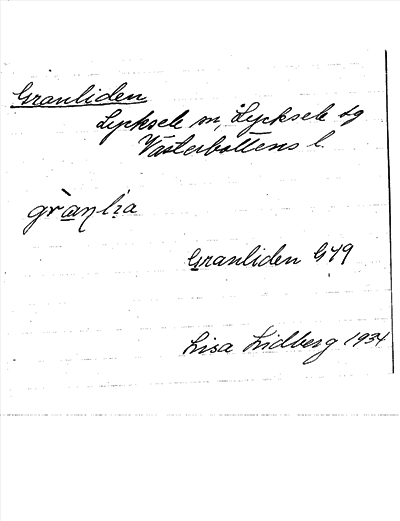 Granliden
Lycksele m, Lycksele sg
Västerbottens l.
Granliden G49
Lisa Lidberg 1934